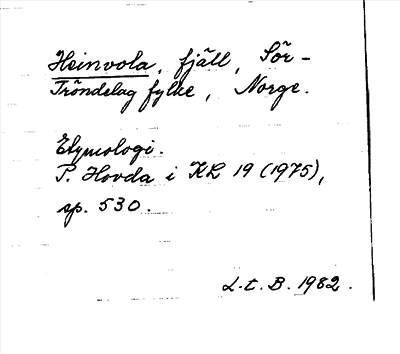 Heinvola, fjäll, Sör-
Tröndelag fylke, Norge.
Etymologi.
P. Hovda i KL 19 (1975),
sp. 530.
L.t. B. 1982.